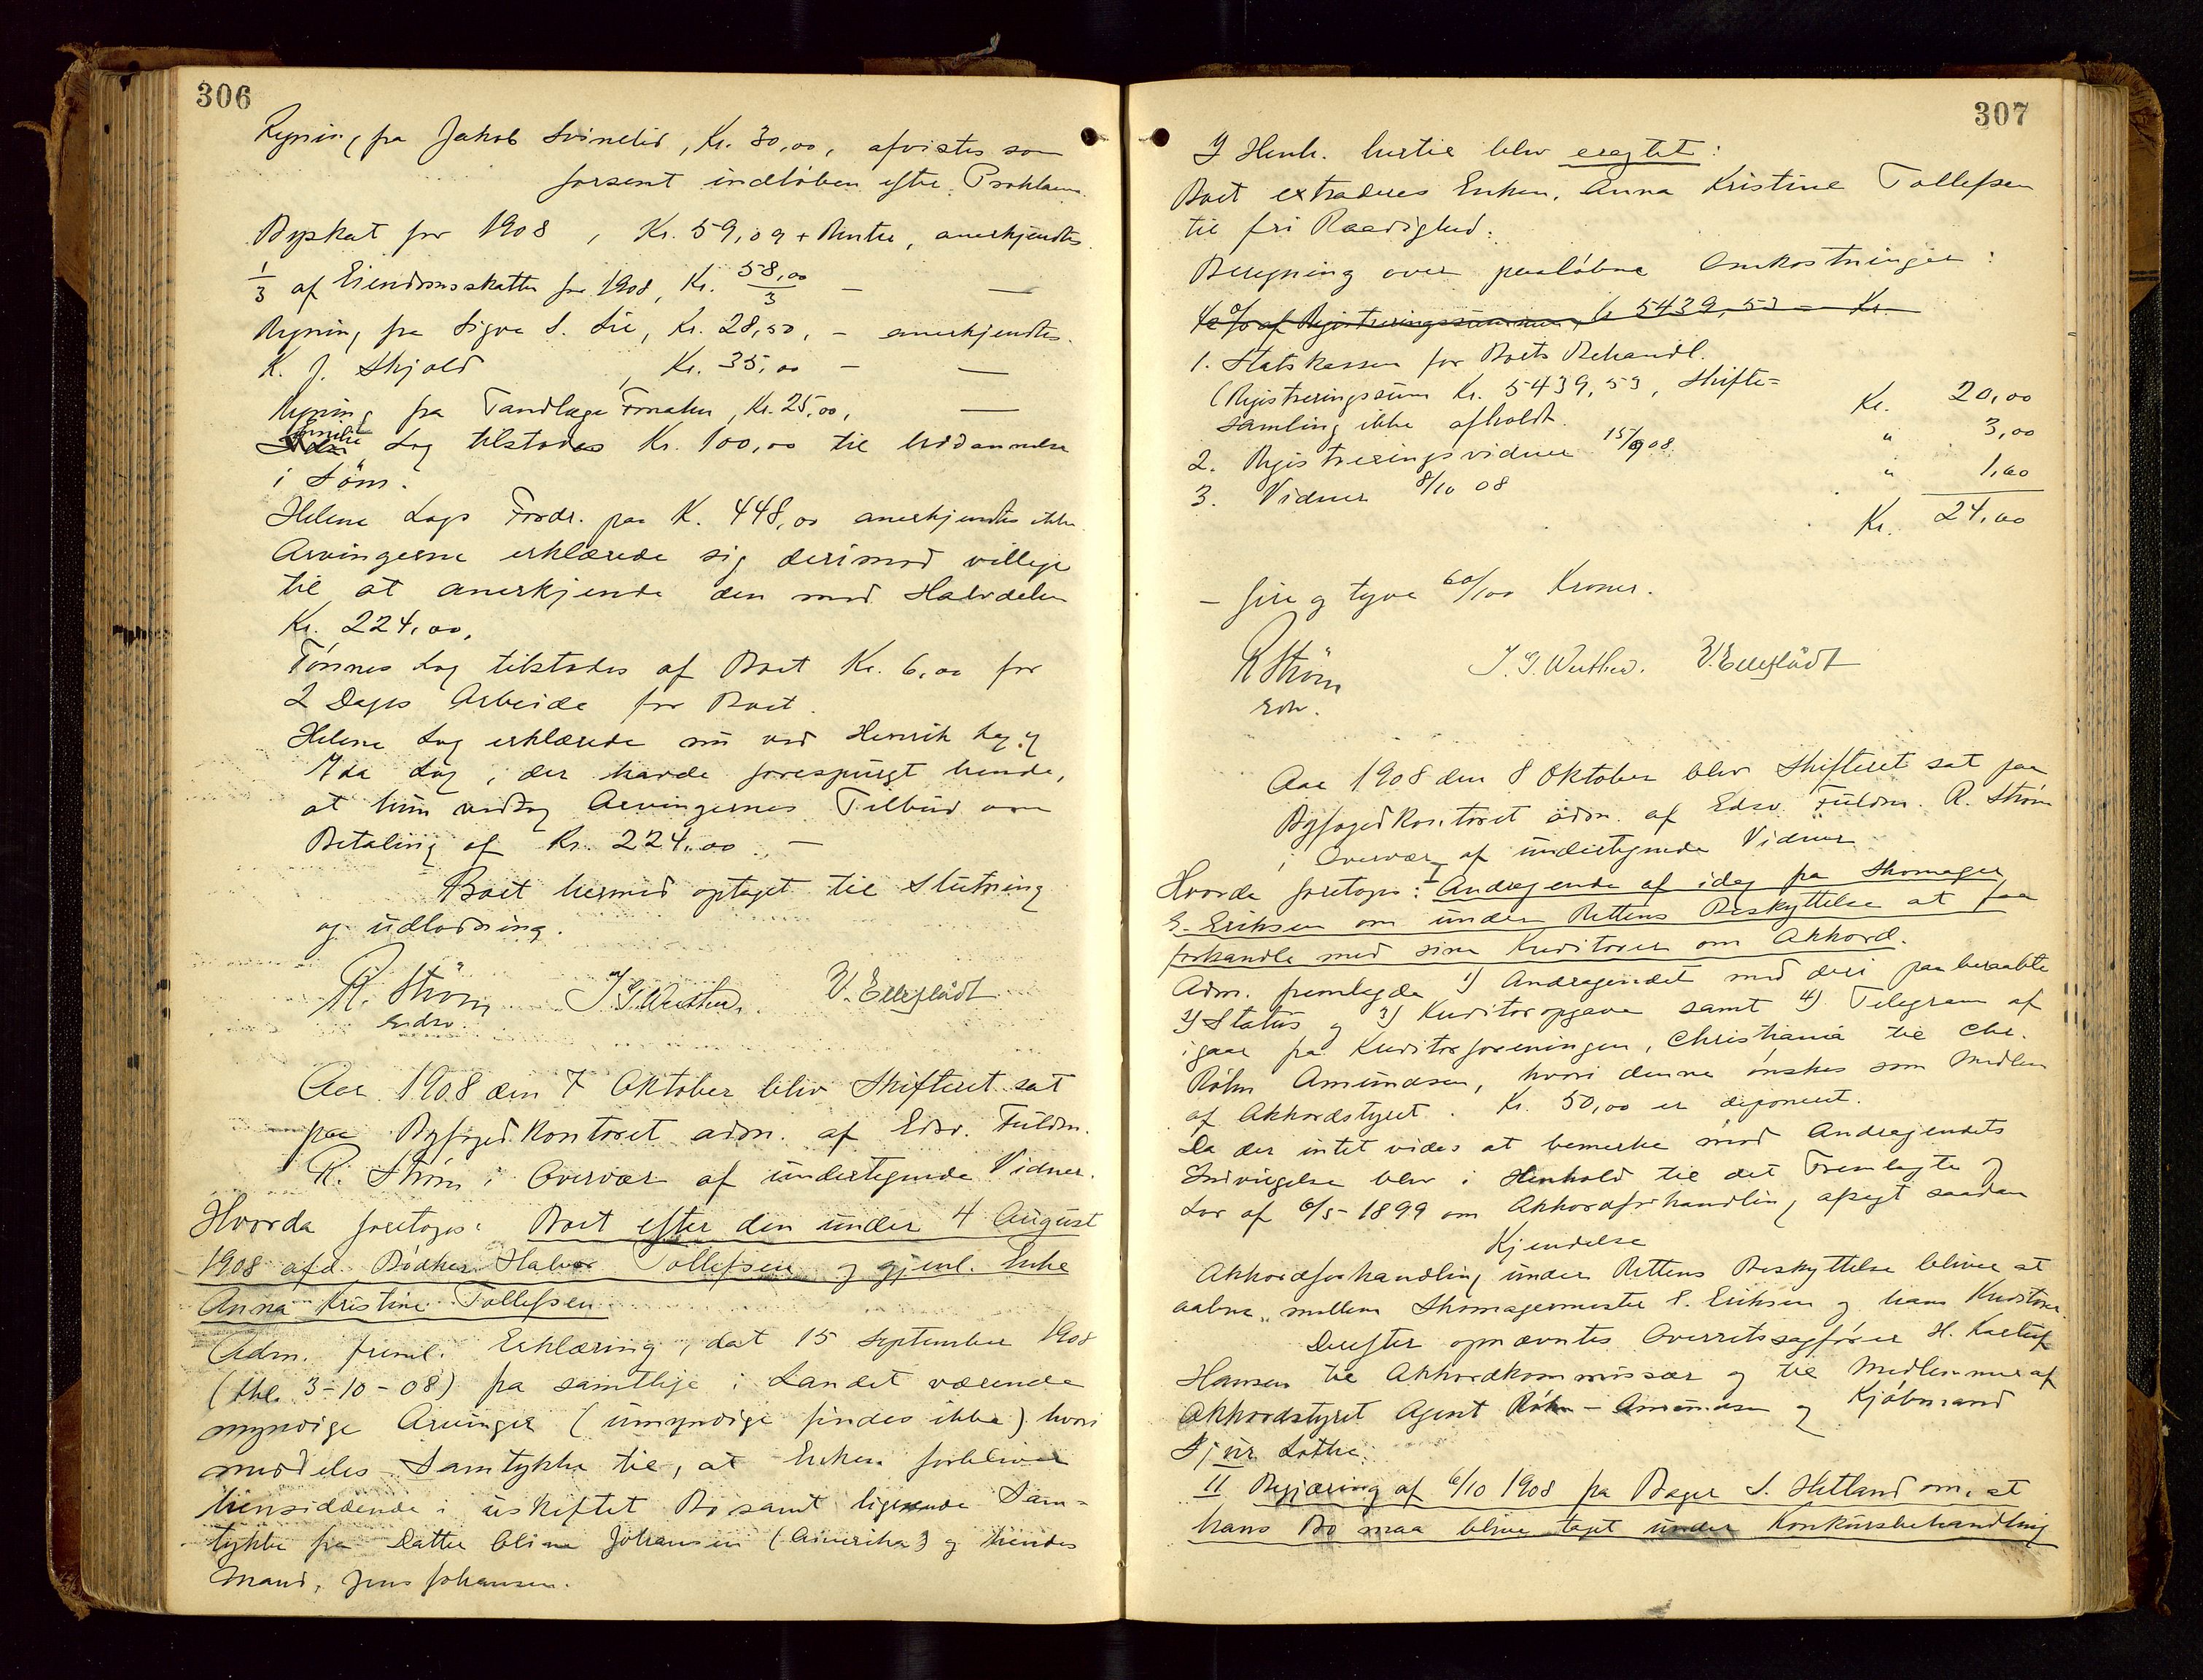 306
Regning fra Jakob Svinelid, Kr. 30,00, afvistes som
forsent indløben efter Proklama
Byskat for 1908, Kr. 59,09 + Renter, anerkjendtes
1/3 af Eiendomsskatten for 1908, Kr. 58,00/3 — —
Regning fra Sigva S. Lie, Kr. 28,50, — anerkjendtes.
K. J. Skjold, Kr. 35,00 — —
Regning fra Tandlæge , Kr. 25,00, —
Emilie Log tilstodes Kr. 100,00 til Uddannelse
i Söm.
Helene Logs Fordr. paa K. 448,00 anerkjendtes ikke
Arvingerne erklærede sig derimod villige
til at anerkjende den med Halvdelen
Kr. 224,00,
Tönnes Log tilstodes af Boet Kr. 6,00 for
2 Dages Arbeide for Boet.
Helene Log erklærede nu ved Henrik Log og
Ida Log, der havde forespurgt hende,
at hun vedtog Arvingernes Tilbud om
Betaling af Kr. 224,00. —
Boet hermed optaget til Slutning
og udlodning.
R. Ström J G Wuther. V. Ellefládt
Edsv.
Aar 1908 den 7 Oktober blev Skifteret sat
paa Byfogedkontoret adm. af Edsv. Fuldm.
R. Ström i Overvær af undertegnede Vidner.
Hvorda foretoges: Boet efter den under 4 August
1908 afd. Bødker Halvor Tollefsen og gjenl. Enke
Anna Kristine Tollefsen
Adm. freml. Erklæring, dat 15 September 1908
(thl. 3-10-08) fra samtlige i Landet værende
myndige Arvinger (umyndige findes ikke) hvori
meddeles Samtykke til, at Enken forbliver
hensiddende i uskiftet Bo samt lignende Sam-
tykke fra Datter Oline Johansen (Amerika) og hendes
Mand, Jens Johansen.
307
I Henh. hertil blev eragtet:
Boet extraderes Enken, Anna Kristine Tollefsen
til fri Raadighed.
Beregning over paaløbne Omkostninger:
1/2 % af Registreringssummen, Kr 5439,53 — Kr. —
1. Statskassen for Boets Behandl.
(Registreringssum Kr. 5439,53, Skifte=
samling ikke afholdt. Kr. 20,00
2. Registreringsvidner 15/9 08. " 3,00
3. Vidner 8/10 08 " 1,60
Kr. 24,60
— fire og tyve 60/100 Kroner.
R Ström J. G. Wuther. V. Ellefládt
Edsv.
Aar 1908 den 8 Oktober blev Skifteret sat paa
Byfogedkontoret adm. af Edsv. Fuldm. R. Ström
i Overvær af undertegnede Vidner
Hvorda foretoges: I Andragende af idag fra Skomager
E. Eriksen om under Rettens Beskyttelse at faa
forhandle med sine Kreditorer om Akkord.
Adm. fremlagde 1) Andragendet med deri paaberaabte
2) Status og 3) Kreditoropgave samt 4) Telegram af
igaar fra Kreditorforeningen, Christiania til Chr.
Röhn Amundsen, hvori denne ønskes som Medlem
af Akkordstyret. Kr. 50,00 er deponeret.
Da der intet vides at bemerke mod Andragendets
Indvilgelse blev i Henhold til det Fremlagte og
Lov af 6/5-1899 om Akkordforhandling afsagt saadan
Kjendelse
Akkordforhandling under Rettens Beskyttelse bliver at
aabne mellem Skomagermester E. Eriksen og hans Kreditorer.
Derefter opnævntes Overretssagfører H. Kastrup
Hansen til Akkordkommissær og til Medlemmer af
Akkordstyret Agent Röhn-Amundsen og Kjøbmand
Sjur Lothe.
II Begjæring af 6/10 1908 fra Bager S. Hetland om, at
hans Bo maa blive taget under Konkursbehandling